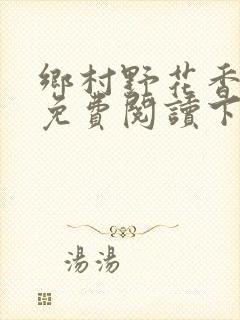 鄉村野花香
免費閱讀下
湯湯